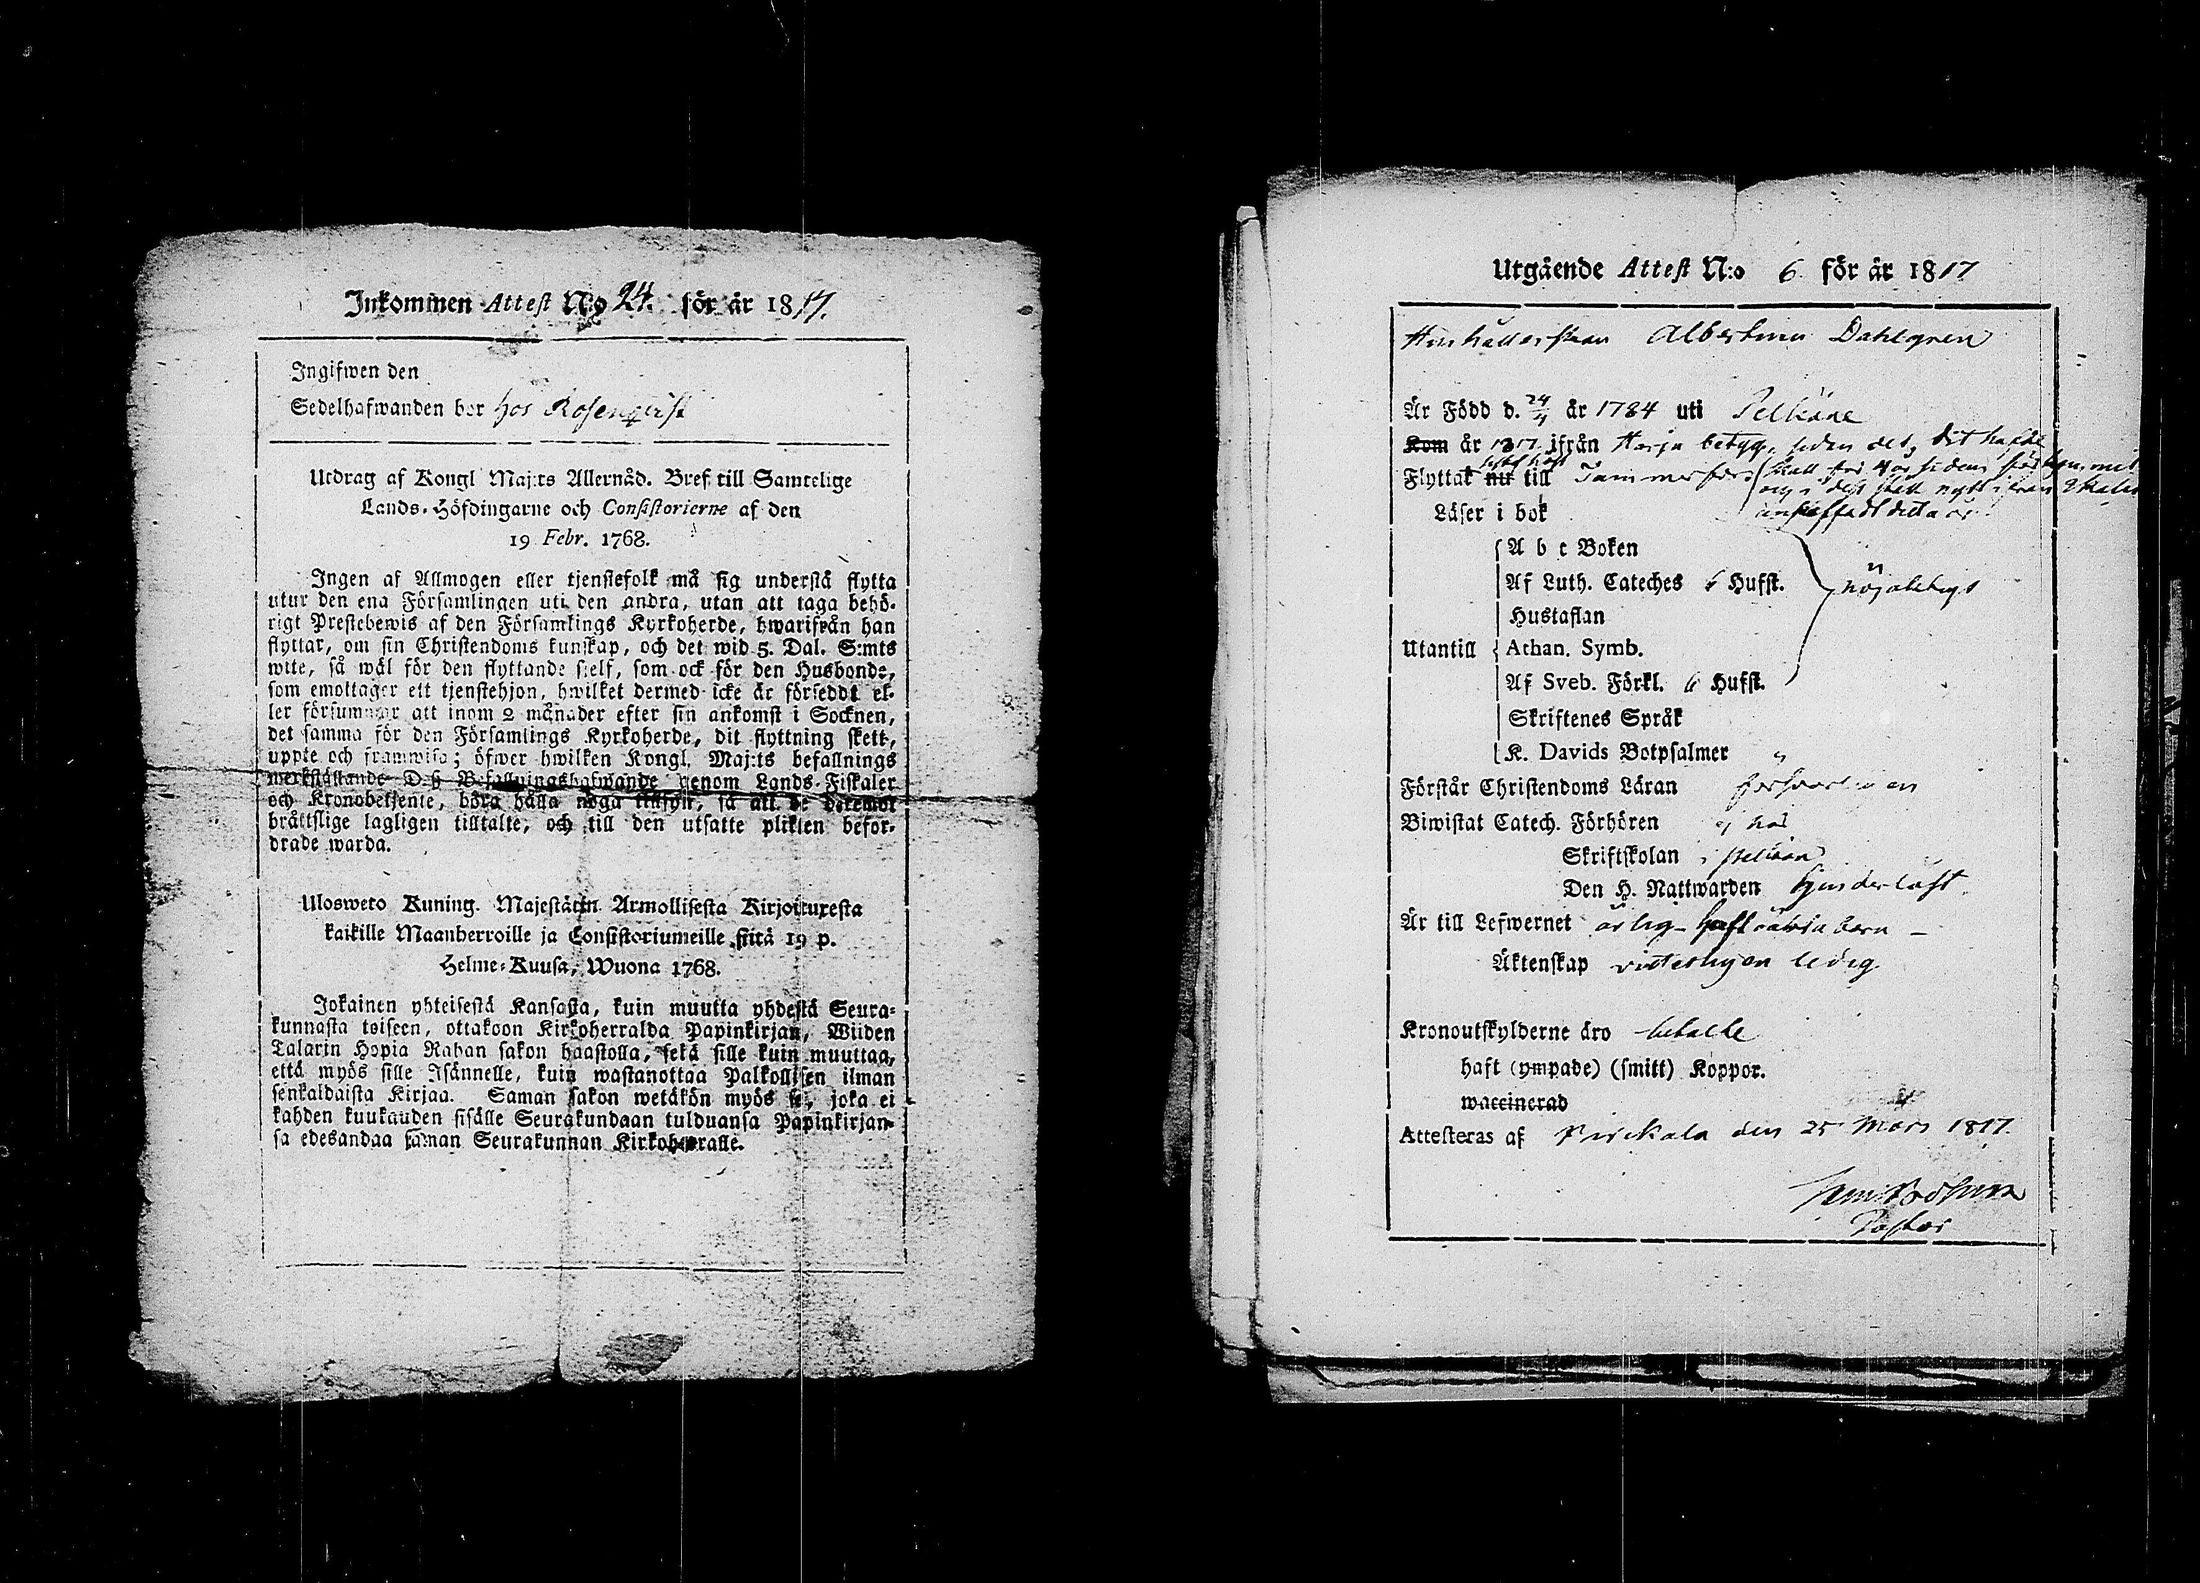 Inkommen Attest N:o 24. för år 1817.
Ingifwen den
Sedelhafwanden bor hos Rosenqvist
Utdrag af Kongl Maj:ts Allernåd. Bref till Samtelige
Lands-Höfdingarne och Consistorierne af den
19 Febr. 1768.
Ingen af Allmogen eller tjenstefolk må sig understå flytta
utur den ena Församlingen uti den andra, utan att taga behö-
rigt Prestebewis af den Församlings Kyrkoherde, hwarifrån han
flyttar, om sin Christendoms kunskap, och det wid 5. Dal. S:mts
wite, så wäl för den flyttande sielf, som ock för den Husbonde,
som emottager ett tjenstehjon, hwilket dermed icke är förseddt el-
ler försummar att inom 2 månader efter sin ankomst i Socknen,
det samma för den Församlings Kyrkoherde, dit flyttning skett,
uppte och framwisa; öfwer hwilken Kongl. Maj:ts befallnings
werkställande D:ß Befallningshafwande genom Lands-Fiskaler
och Kronobetjente, böra hålla noga tillsyn, så att de deremot
bråttslige lagligen tilltalte, och till den utsatte plikten befor-
drade warda.
Ulosweto Kuning. Majestätin Armollisesta Kirjoituxesta
kaikille Maanherroille ja Consistoriumeille siitä 19 p.
Helme-Kuusa, Wuona 1768.
Jokainen yhteisestä Kansasta, kuin muutta yhdestä Seura-
kunnasta toiseen, ottakoon Kirkoherralda Papinkirjan, Wiiden
Talarin Hopia Rahan sakon haastolla, sekä sille kuin muuttaa,
että myös sille Isännelle, kuin wastanottaa Palkollisen ilman
senkaldaista Kirjaa. Saman sakon wetäkön myös se, joka ei
kahden kuukauden sisälle Seurakundaan tulduansa Papinkirjan-
sa edesandaa saman Seurakunnan Kirkoherralle.
Utgående Attest N:o 6 för år 1817
Albertina Dahlgren
Är Född d. 24/4 år 1784 uti Pelkäne
Kom år 1817 ifrån Harju betyg, sedan det, dit hafde
Flyttat nu till Tammerfors
Läser i bok
A b c Boken
Af Luth. Cateches 6 Hufst. nöjaktigt
Hustaflan
Utantill Athan. Symb.
Af Sveb. Förkl. 6 Hufst.
Skriftenes Språk
K. Davids Botpsalmer
Förstår Christendoms Läran försvarligen
Biwistat Catech. Förhören ej här
Skriftskolan i
Den H. Nattwarden
Är till Lefwernet ärlig - haft oäkta barn -
Äktenskap ledig
Kronoutskylderne äro betalte
haft (ympade) (smitt) Koppor.
waccinerad
Attesteras af Birckala den 25 Mars 1817.
Pastor